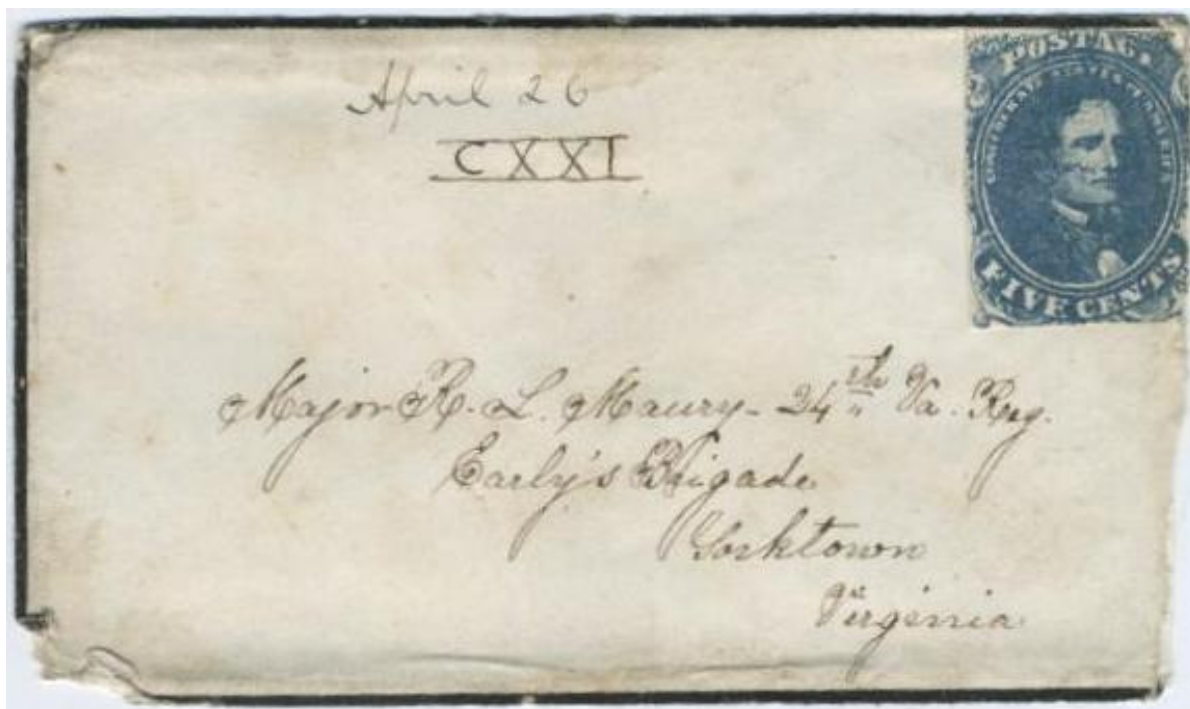 April 26
CXXI
POSTAGE
CONFEDERATE STATES OF AMERICA
FIVE CENTS
Major R. L. Maury - 24th Va. Reg.
Early's Brigade
Yorktown
Virginia